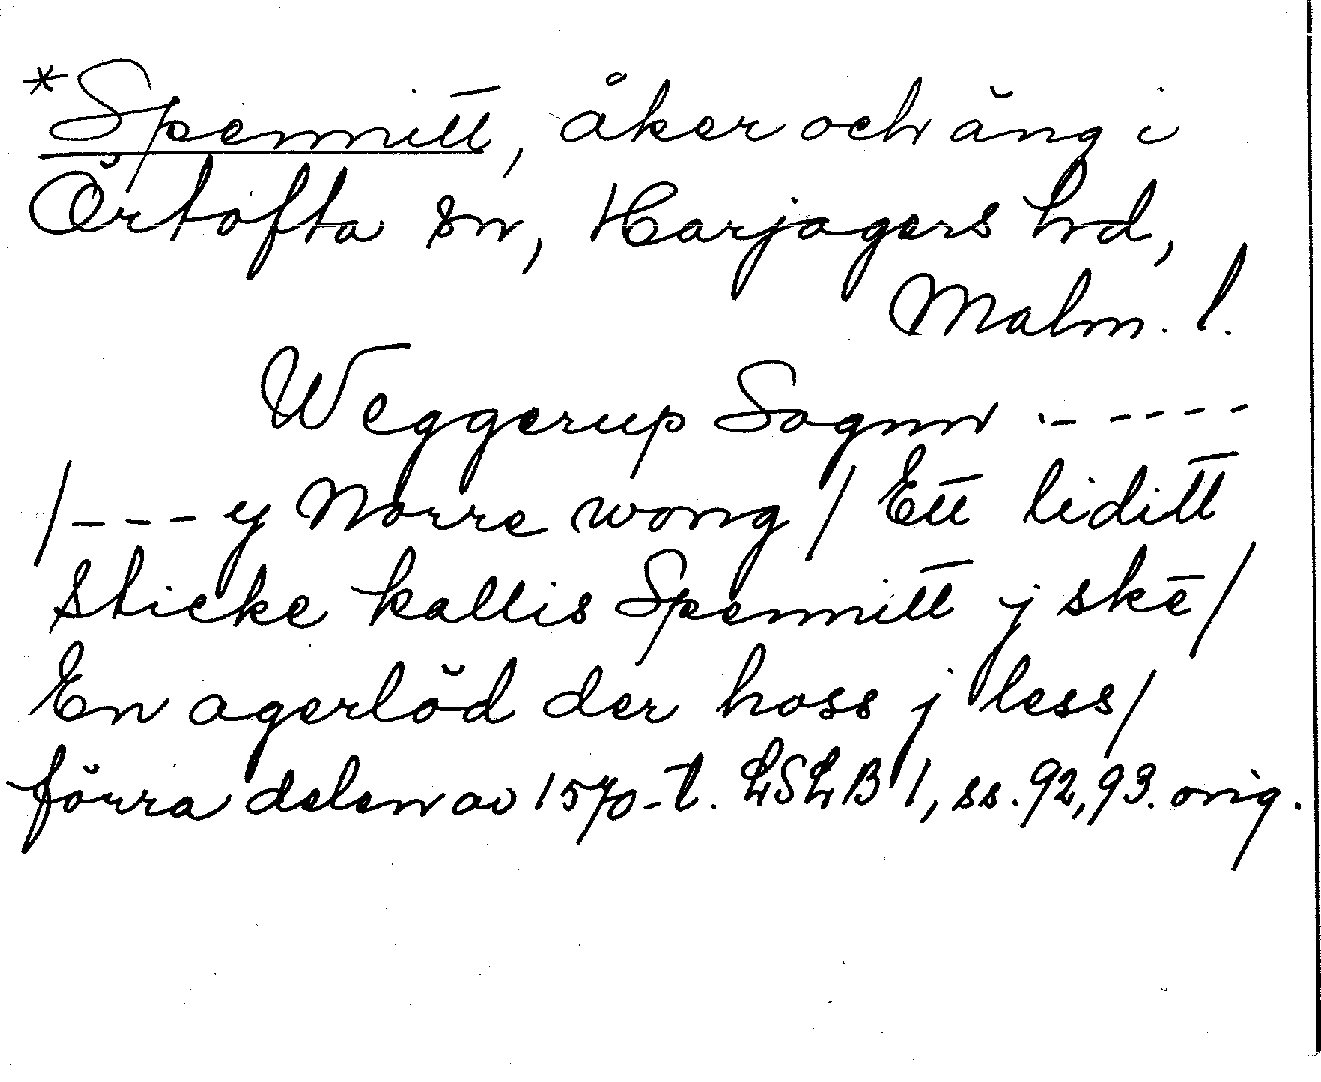 *Spennitt, åker och äng i
Örtofta sn, Harjagers hd,
Malm. l.
Weggerup Sognn .-----
/--- y Norre wong / Ett liditt
sticke kallis Spennitt j skē /
En agerlöd der hoss j less /
förra delen av 1570-t. LSLB 1, ss. 92, 93. orig.